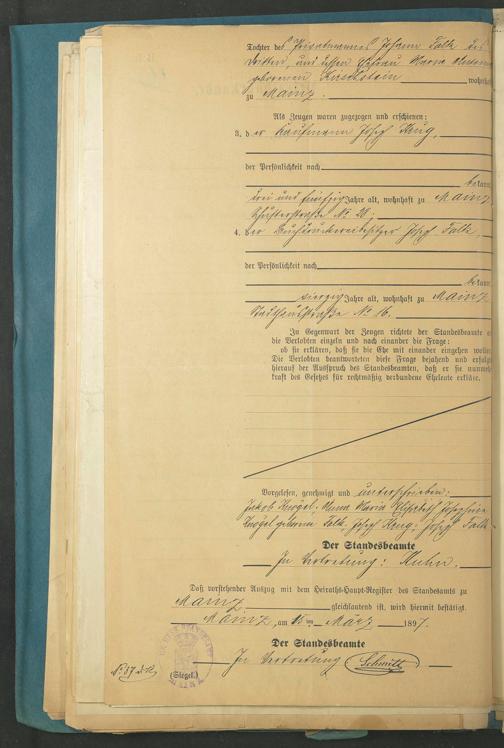 Tochter des Privatmannes Johann Falk des
Dritten, und dessen Ehefrau Maria
geborenen wohnhaft
zu Mainz.
Als Zeugen waren zugezogen und erschienen:
3. der Kaufmann Josef Krug,
der Persönlichkeit nach
bekannt,
drei und fünfzig Jahre alt, wohnhaft zu Mainz
Schusterstraße No. 28;
4. der Buchdruckereibesitzer Josef Falk,
der Persönlichkeit nach
bekannt,
vierzig Jahre alt, wohnhaft zu Mainz
Stadthausstraße No 16.
In Gegenwart der Zeugen richtete der Standesbeamte a
die Verlobten einzeln und nach einander die Frage:
ob sie erklären, daß sie die Ehe mit einander eingehen wollen
Die Verlobten beantworteten diese Frage bejahend und erfolgte
hierauf der Ausspruch des Standesbeamten, daß er sie nunmehr
kraft des Gesetzes für rechtmäßig verbundene Eheleute erkläre.
Vorgelesen, genehmigt und unterschrieben:
Jakob Anna Maria Elisabeth Josephine
geborene Falk, Josef Krug; Josef Falk
Der Standesbeamte
In Vertretung: Kuhn.
Daß vorstehender Auszug mit dem Heiraths-Haupt-Register des Standesamts zu
Mainz gleichlautend ist, wird hiermit bestätigt.
Mainz, am 15ten März 1897.
Der Standesbeamte
In Vertretung Schmitt
(Siegel.)